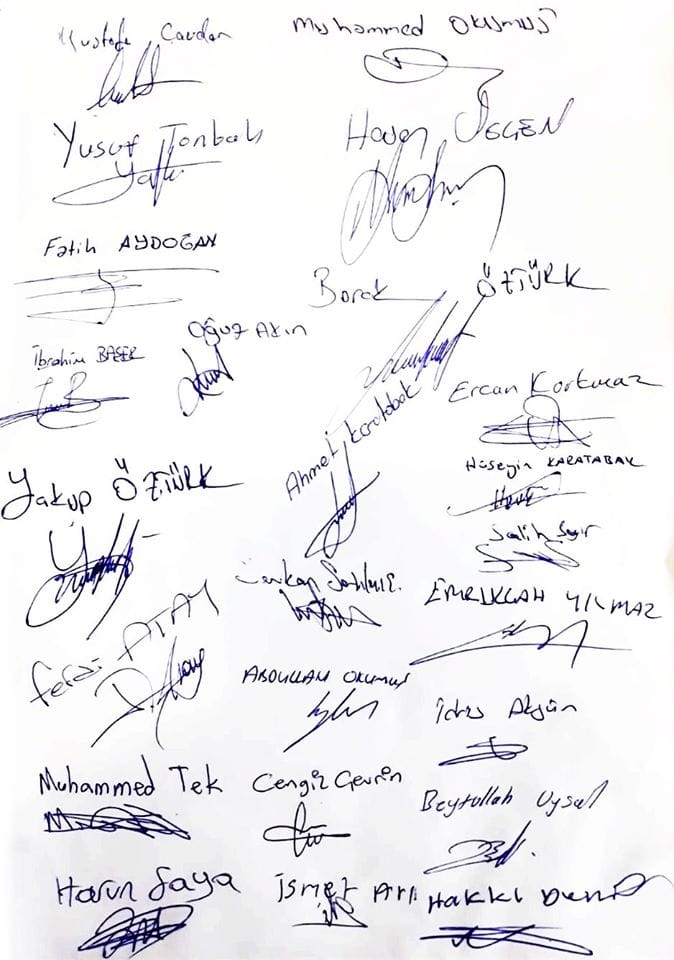 Mustafa Candan
Muhammed OKUMUŞ
Yusuf Tonbak
Hasan ÜSGEN
Fatih AYDOĞAN
Burak ÖZTÜRK
İbrahim BAŞER
Oğuz Akın
Ercan Korkmaz
Ahmet Karatabak
Hüseyin KARATABAK
Yakup ÖZTÜRK
Salih
Serkan
EMRULLAH YILMAZ
ATAY
ABDULLAH OKUMUŞ
İdris Akgün
Muhammed Tek
Cengiz Çevrin
Beytullah Uysal
Harun Saya
İsmet
Hakkı